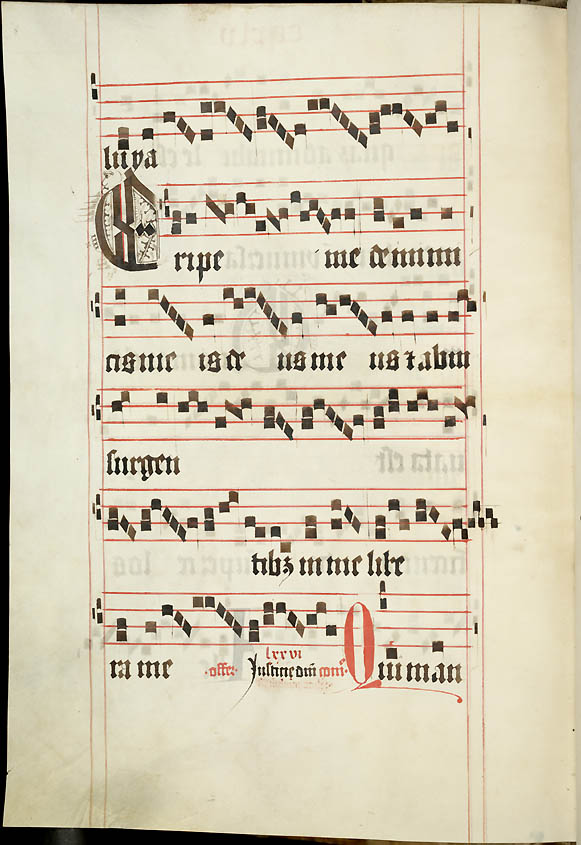 luya
Eripe me de inimi
cis me is de us me us ⁊ ab in
surgen
tibꝫ in me libe
ra me ·offer· Justicie dni com̄o Qui man
lxxvi